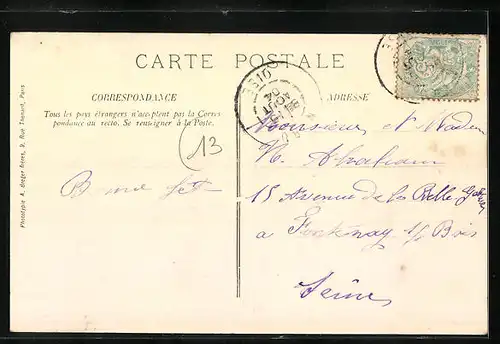 CARTE POSTALE
CORRESPONDANCE
ADRESSE
Tous les pays étrangers n'acceptent pas la Corres
pondance au recto. Se renseigner à la Poste.
13
Monsieur et Madame
Abraham
15 Avenue de la Belle Gabrielle
a Fontenay s/s Bois
Seine
OISE
AOUT
04
Phototypie A. Breger Frères, 9, Rue Thénard, Paris